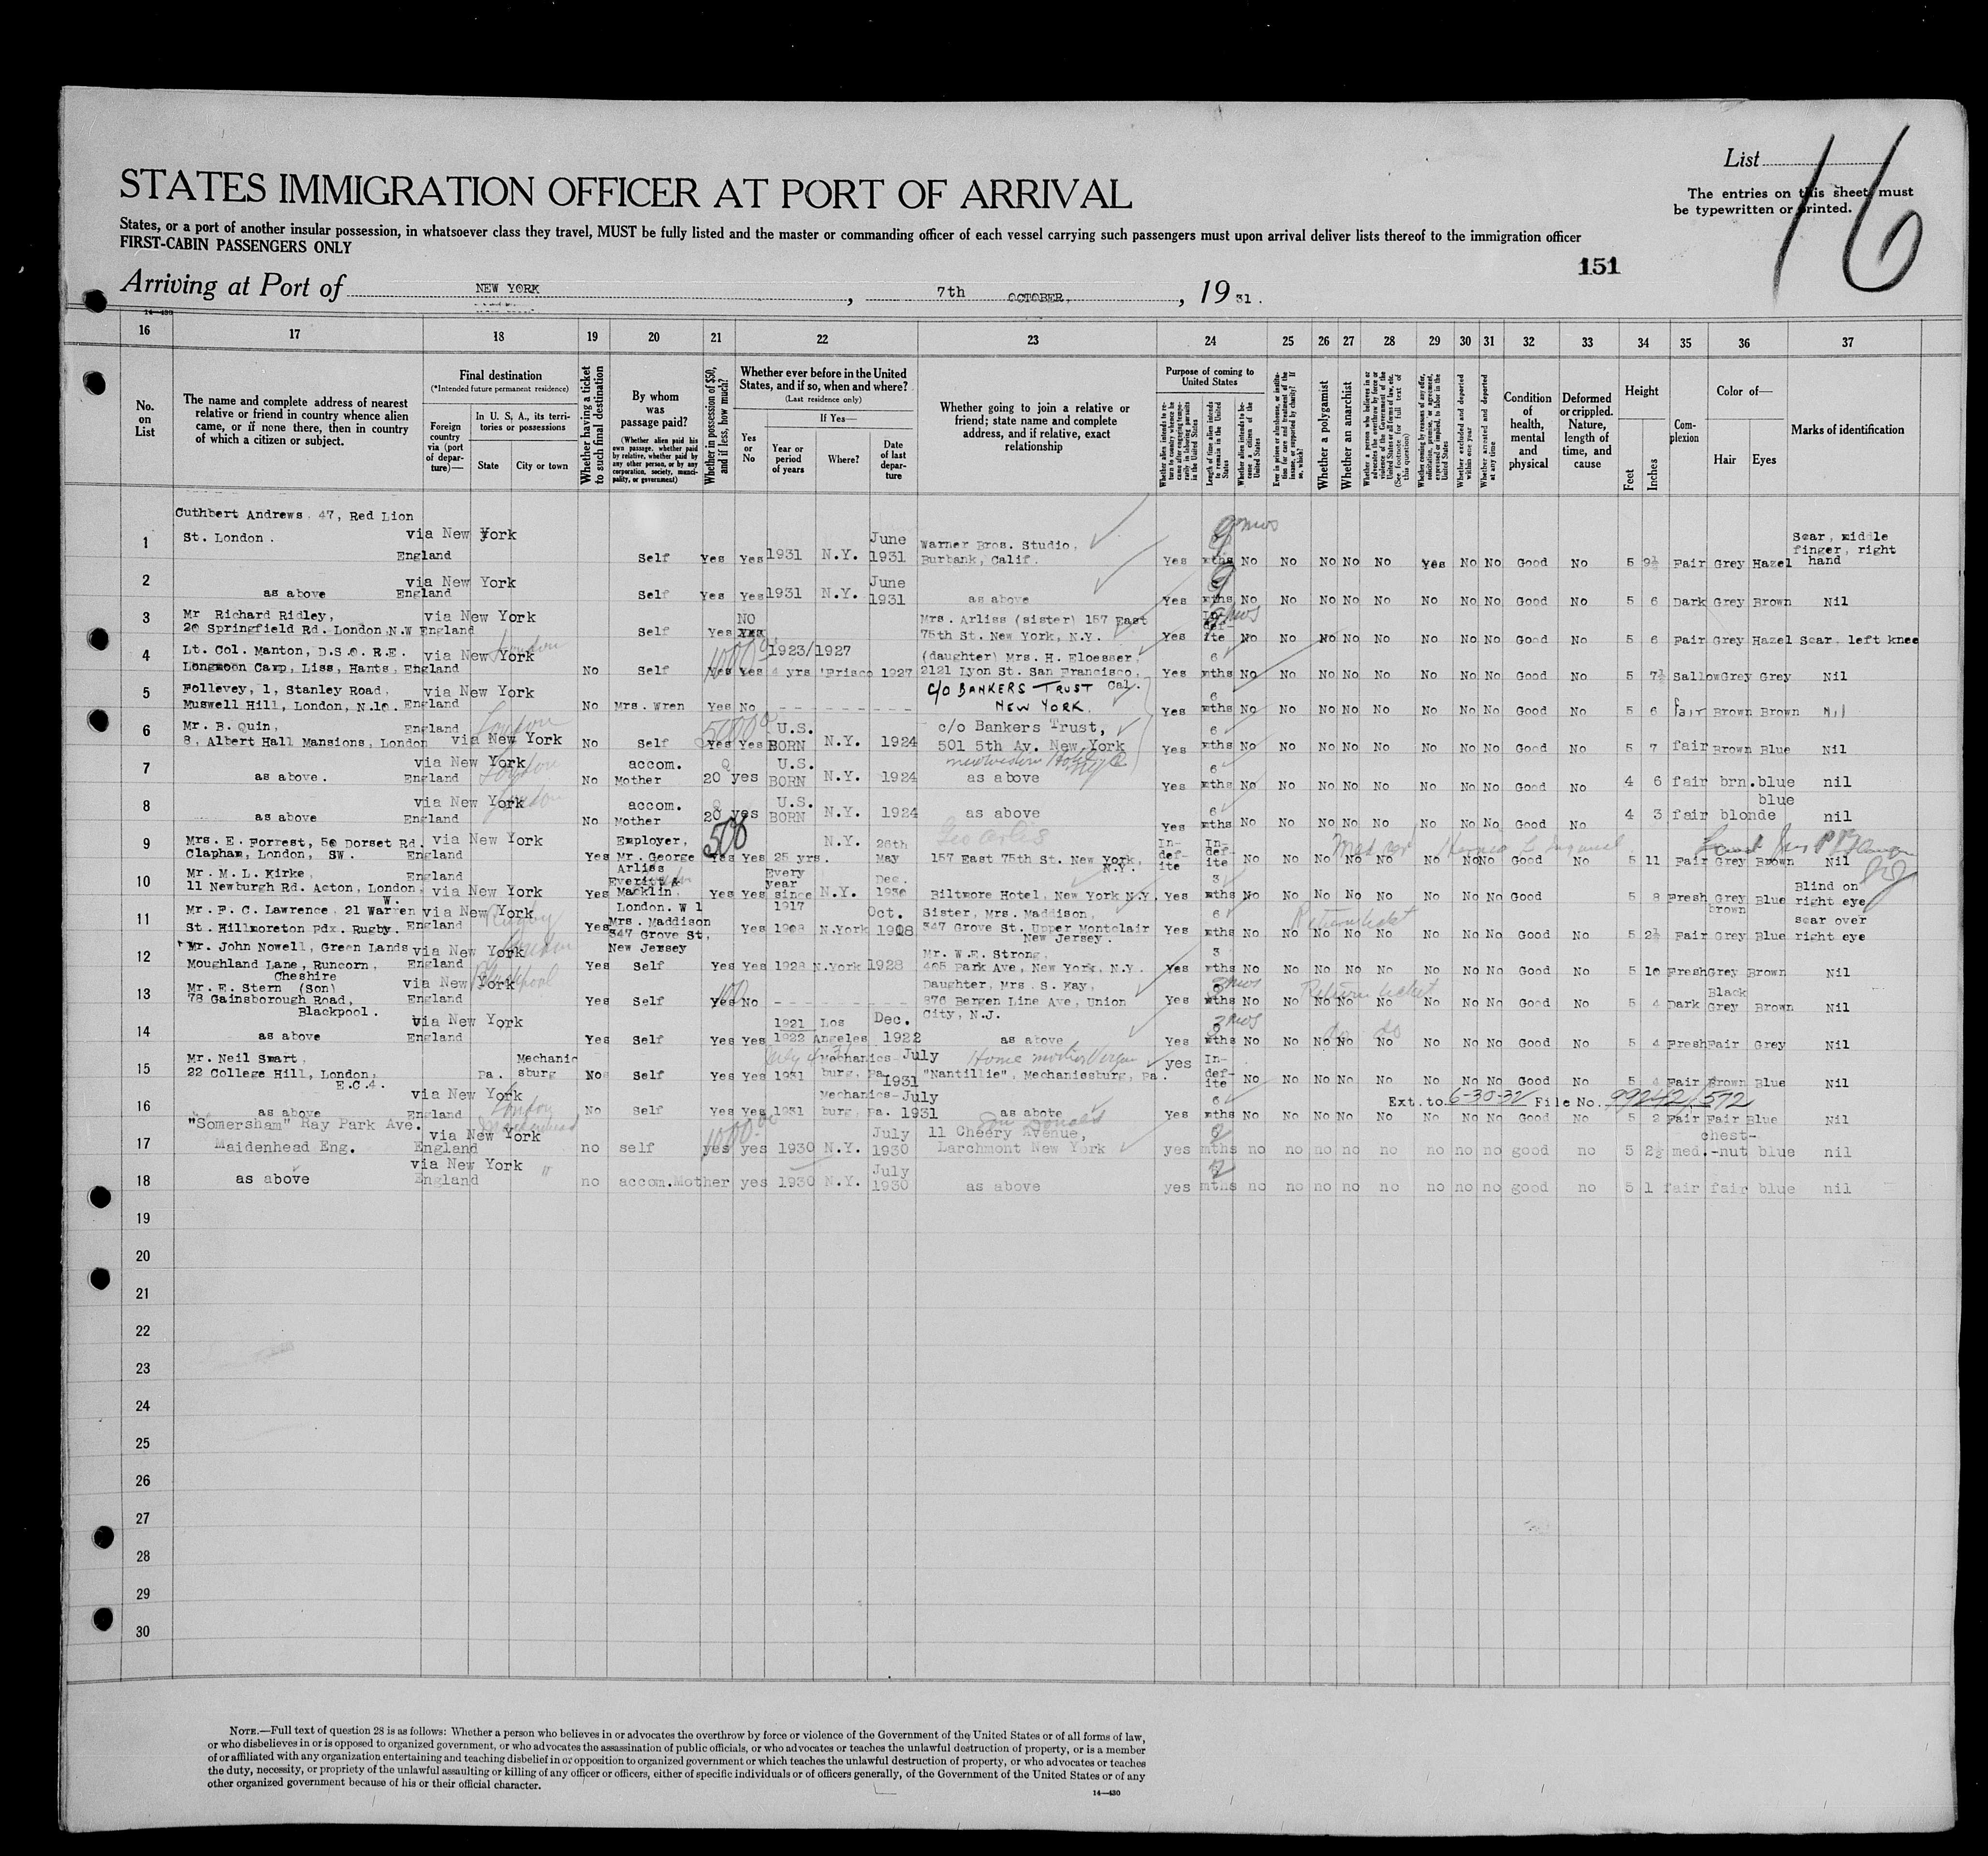 List
16
The entries on this sheet must
be typewritten or printed.
STATES IMMIGRATION OFFICER AT PORT OF ARRIVAL
States, or a port of another insular possession, in whatsoever class they travel, MUST be fully listed and the master or commanding officer of each vessel carrying such passengers must upon arrival deliver lists thereof to the immigration officer
FIRST-CABIN PASSENGERS ONLY
151
Arriving at Port of NEW YORK, 7th OCTOBER, 1931.
14—430
16 17 18 19 20 21 22 23 24 25 26 27 28 29 30 31 32 33 34 35 36 37
No. on List
The name and complete address of nearest relative or friend in country whence alien came, or if none there, then in country of which a citizen or subject.
Final destination
(*Intended future permanent residence)
Foreign country via (port of departure)—
In U. S. A., its territories or possessions
State
City or town
Whether having a ticket to such final destination
By whom was passage paid?
(Whether alien paid his own passage, whether paid by relative, whether paid by any other person, or by any corporation, society, municipality, or government)
Whether in possession of $50, and if less, how much?
Whether ever before in the United States, and if so, when and where?
(Last residence only)
Yes or No
If Yes—
Year or period of years
Where?
Date of last departure
Whether going to join a relative or friend; state name and complete address, and if relative, exact relationship
Purpose of coming to United States
Whether alien intends to return to country whence he came after engaging temporarily in laboring pursuits in the United States
Length of time alien intends to remain in the United States
Whether alien intends to become a citizen of the United States
Ever in prison or almshouse, or institution for care and treatment of the insane, or supported by charity? If so, which?
Whether a polygamist
Whether an anarchist
Whether a person who believes in or advocates the overthrow by force or violence of the Government of the United States or all forms of law, etc. (See footnote for full text of this question)
Whether coming by reason of any offer, solicitation, promise, or agreement, expressed or implied, to labor in the United States
Whether ever excluded and deported within one year
Whether arrested and deported at any time
Condition of health, mental and physical
Deformed or crippled. Nature, length of time, and cause
Height
Feet
Inches
Complexion
Color of—
Hair
Eyes
Marks of identification
1 Cuthbert Andrews, 47, Red Lion St. London. via New York England Self Yes Yes 1931 N.Y. June 1931 Warner Bros. Studio, Burbank, Calif. Yes 9 mos mths No No No No No Yes No No Good No 5 9½ Fair Grey Hazel Scar, middle finger, right hand
2 as above via New York England Self Yes Yes 1931 N.Y. June 1931 as above Yes 9 mths No No No No No No No No Good No 5 6 Dark Grey Brown Nil
3 Mr Richard Ridley, 20 Springfield Rd. London N.W via New York England Self Yes NO Yes Mrs. Arliss (sister) 157 East 75th St. New York, N.Y. Yes Indefite mos No No No No No No No No Good No 5 6 Fair Grey Hazel Scar. left knee
4 Lt. Col. Manton, D.S.O. R.E. Longmoon Camp, Liss, Hants, via New York England London No Self 1000 Yes Yes 1923/1927 4 yrs 'Frisco 1927 (daughter) Mrs. H. Eloesser, 2121 Lyon St. San Francisco, Cal. Yes 6 mths No No No No No No No No Good No 5 7½ Sallow Grey Grey Nil
5 Follevey, 1, Stanley Road, Muswell Hill, London, N.10. via New York England No Mrs. Wren Yes No - - - - - - - C/O BANKERS TRUST NEW YORK. Yes 6 mths No No No No No No No No Good No 5 6 fair Brown Brown Nil
6 Mr. B. Quin, 8, Albert Hall Mansions, London England via New York London No Self 5000 Yes Yes U.S. BORN N.Y. 1924 c/o Bankers Trust, 501 5th Av. New York Yes 6 mths No No No No No No No No Good No 5 7 fair Brown Blue Nil
7 as above. via New York England London No accom. Mother 20 yes U.S. BORN N.Y. 1924 as above Yes 6 mths No No No No No No No No Good No 4 6 fair brn. blue nil
8 as above via New York England London No accom. Mother 20 yes U.S. BORN N.Y. 1924 as above Yes 6 mths No No No No No No No No Good No 4 3 fair blonde blue nil
9 Mrs. E. Forrest, 50 Dorset Rd. Clapham, London, SW. via New York England Yes Employer, Mr. George Arliss 500 Yes Yes 25 yrs. N.Y. 26th May Geo Arliss 157 East 75th St. New York, N.Y. Indefite Indefite No No No No No No No No Good No 5 11 Fair Grey Brown Nil
10 Mr. M. L. Kirke, 11 Newburgh Rd. Acton, London, W. England via New York Yes Everitt & Macklin. London. W 1 Yes Yes Every year since 1917 N.Y. Dec. 1930 Biltmore Hotel, New York N.Y. Yes 3 mths No No No No No No No No Good 5 8 Fresh Grey brown Blue Blind on right eye
11 Mr. F. C. Lawrence, 21 Warren St. Hillmoreton Pdx. Rugby. via New York England Rugby Yes Mrs. Maddison 347 Grove St, New Jersey Yes 1908 N.York Oct. 1908 Sister, Mrs. Maddison, 347 Grove St. Upper Montclair New Jersey. Yes 6 mths No No No No No No No No Return ticket Good No 5 2½ Fair Grey Blue scar over right eye
12 Mr. John Nowell, Green Lands Moughland Lane, Runcorn, Cheshire via New York England Yes Self Yes Yes 1928 N.York 1928 Mr. W.E. Strong, 405 Park Ave, New York, N.Y. Yes 3 mths No No No No No No No No Good No 5 10 Fresh Grey Brown Nil
13 Mr. E. Stern (Son) 78 Gainsborough Road, Blackpool. via New York England Blackpool Yes Self 100 Yes No - - - - - - - Daughter, Mrs. S. Kay, 876 Bergen Line Ave, Union City, N.J. Yes 3 mos mths No No No No No No No No Return ticket Good No 5 4 Dark Black Grey Brown Nil
14 as above via New York England Yes Self Yes Yes 1921 1922 Los Angeles Dec. 1922 as above Yes 3 mos mths No No No No No No No No do do Good No 5 4 Fresh Fair Grey Nil
15 Mr. Neil Smart, 22 College Hill, London, E.C.4. Pa. Mechanicsburg No Self Yes Yes 1931 Mechanicsburg, Pa. July 1931 "Nantillie", Mechanicsburg, Pa. yes Indefite No No No No No No No No Good No 5 4 Fair Brown Blue Nil
16 as above via New York England London No Self Yes Yes 1931 Mechanicsburg, Pa. July 1931 as above Yes 6 mths No No No No No No No No Good No 5 2 Fair Fair Blue Nil
Ext. to 6-30-32 File No. 99242/572
17 "Somersham" Ray Park Ave. Maidenhead Eng. via New York England Maidenhead no self 1000.00 yes yes 1930 N.Y. July 1930 Son Donald 11 Cheery Avenue, Larchmont New York yes mths no no no no no no no no good no 5 2½ med. chest-nut blue nil
18 as above via New York England " no accom. Mother yes 1930 N.Y. July 1930 as above yes mths no no no no no no no no good no 5 1 fair fair blue nil
19
20
21
22
23
24
25
26
27
28
29
30
NOTE.—Full text of question 28 is as follows: Whether a person who believes in or advocates the overthrow by force or violence of the Government of the United States or of all forms of law,
or who disbelieves in or is opposed to organized government, or who advocates the assassination of public officials, or who advocates or teaches the unlawful destruction of property, or is a member
of or affiliated with any organization entertaining and teaching disbelief in or opposition to organized government or which teaches the unlawful destruction of property, or who advocates or teaches
the duty, necessity, or propriety of the unlawful assaulting or killing of any officer or officers, either of specific individuals or of officers generally, of the Government of the United States or of any
other organized government because of his or their official character.
14—430